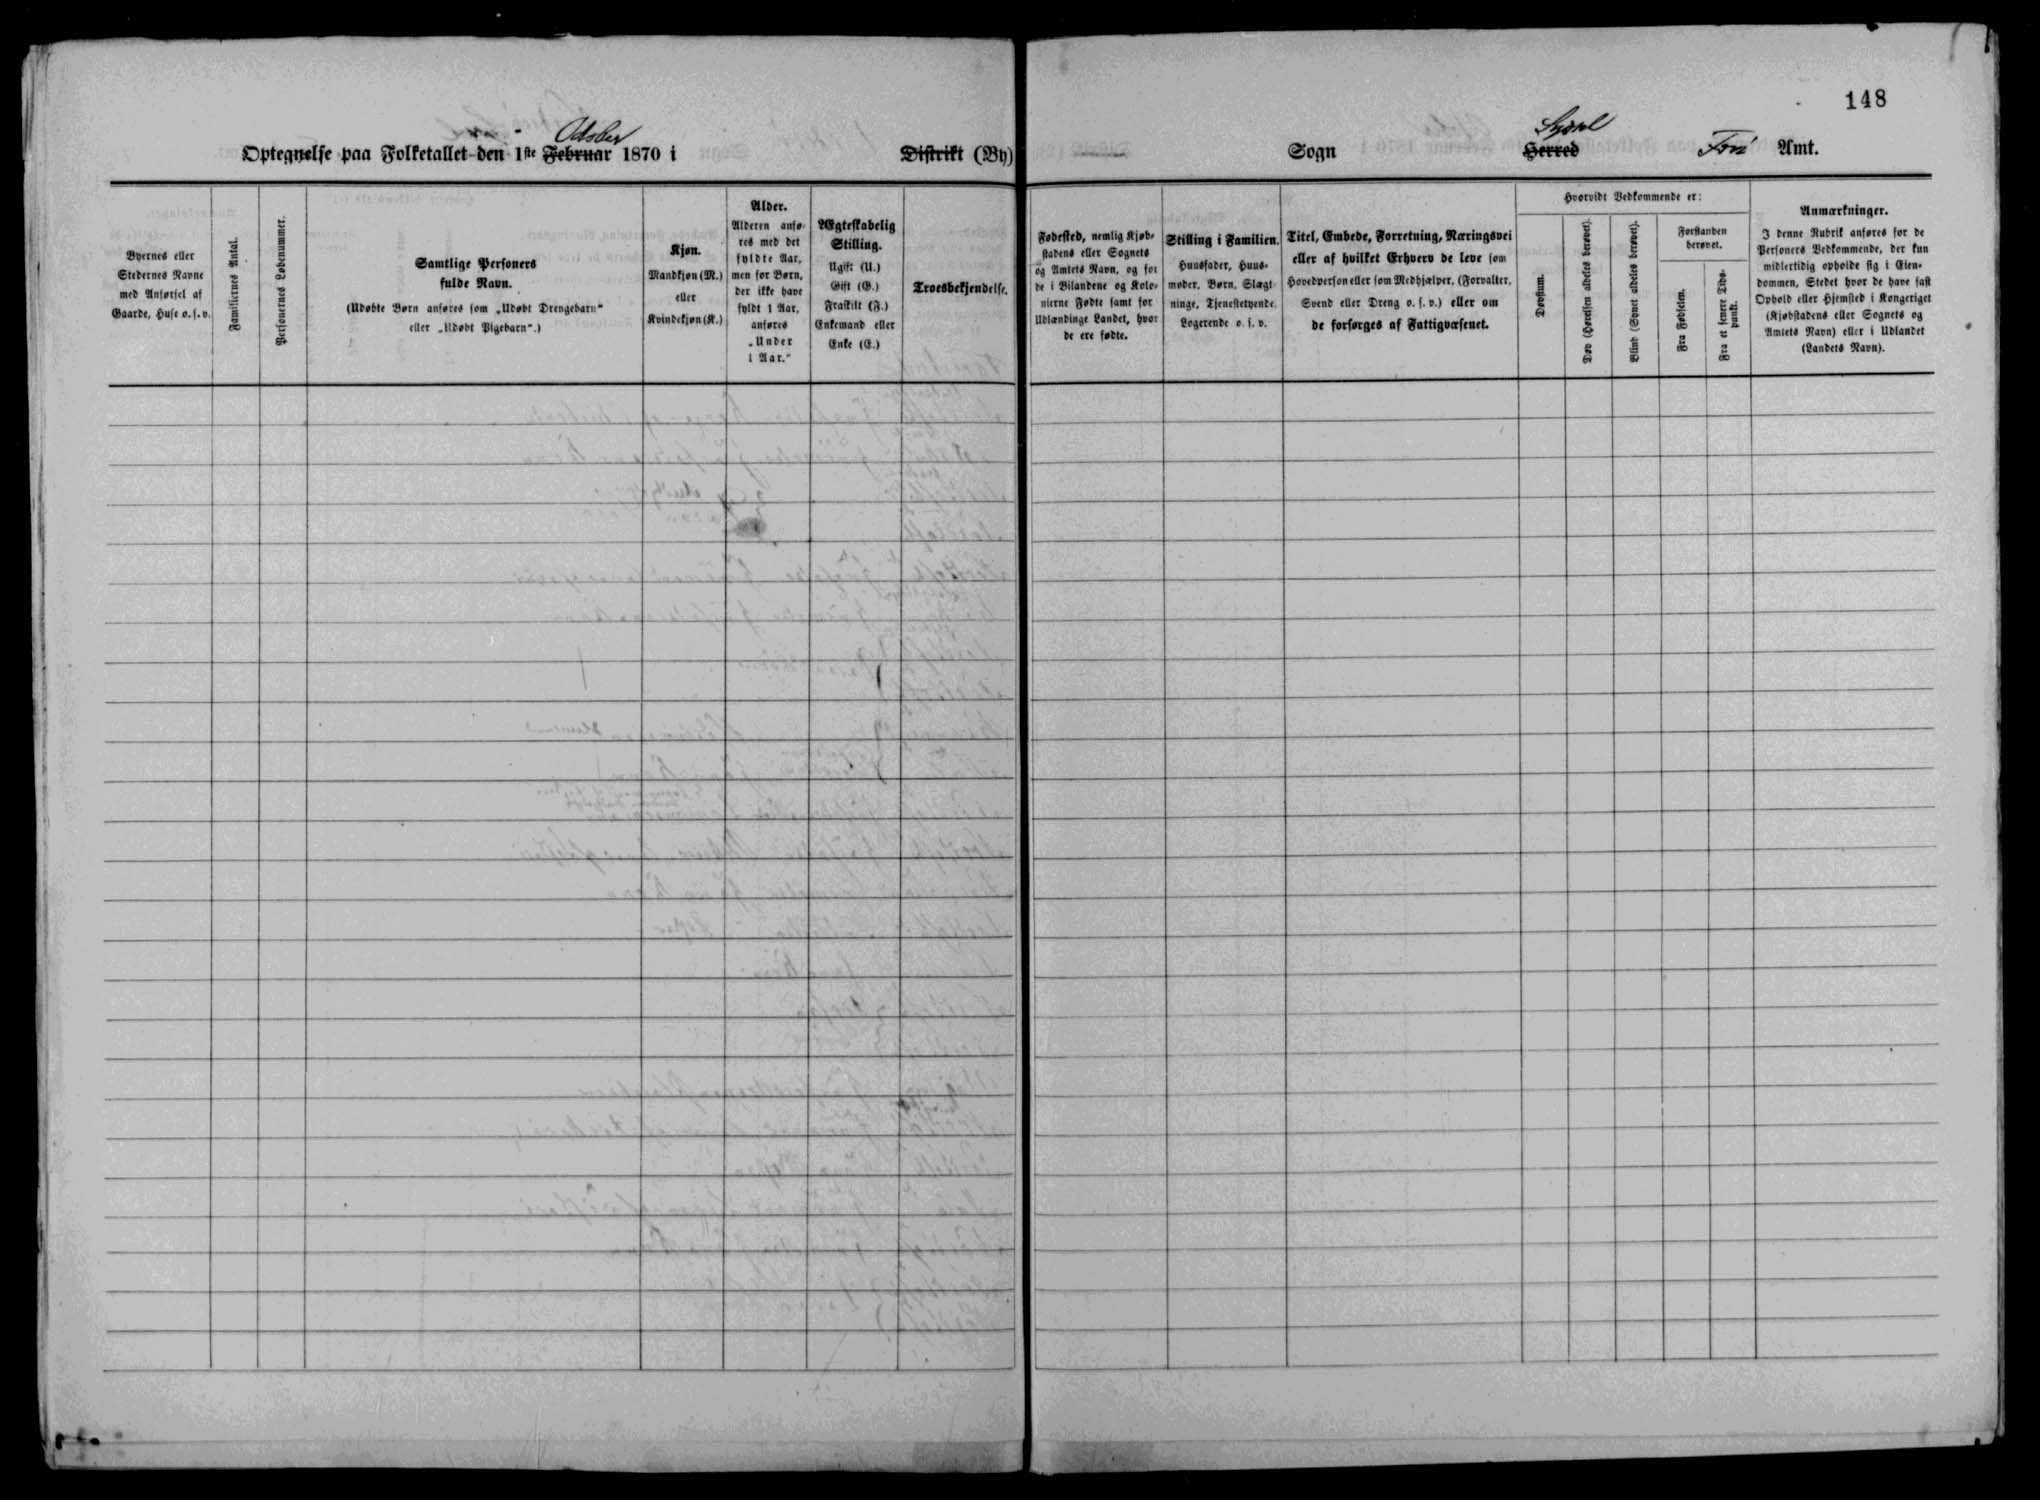 148
October
Optegnelse paa Folketallet den 1ste Februar 1870 i Distrikt (By)
Byernes eller
Stedernes Navne
med Anførsel af
Gaarde, Huse o. s. v.
Familiernes Antal.
Personernes Løbenummer.
Samtlige Personers
fulde Navn.
(Udøbte Børn anføres som „Udøbt Drengebarn“
eller „Udøbt Pigebarn“.)
Kjøn.
Mandkjøn (M.)
eller
Kvindekjøn (K.)
Alder.
Alderen anfø-
res med det
fyldte Aar,
men for Børn,
der ikke have
fyldt 1 Aar,
anføres
„Under
1 Aar.“
Ægteskabelig
Stilling.
Ugift (U.)
Gift (G.)
Fraskilt (F.)
Enkemand eller
Enke (E.)
Troesbekjendelse.
Syssel
Sogn Herred Amt.
Fødested, nemlig Kjøb-
stadens eller Sognets
og Amtets Navn, og for
de i Bilandene og Kolo-
nierne Fødte samt for
Udlændinge Landet, hvor
de ere fødte.
Stilling i Familien.
Huusfader, Huus-
moder, Børn, Slægt-
ninge, Tjenestetyende,
Logerende o. s. v.
Titel, Embede, Forretning, Næringsvei
eller af hvilket Erhverv de leve som
Hovedperson eller som Medhjælper, (Forvalter,
Svend eller Dreng o. s. v.) eller om
de forsørges af Fattigvæsenet.
Hvorvidt Vedkommende er:
Døvstum.
Døv (Hørelsen aldeles berøvet).
Blind (Synet aldeles berøvet).
Forstanden
berøvet.
Fra Fødselen.
Fra et senere Tids-
punkt.
Anmærkninger.
I denne Rubrik anføres for de
Personers Vedkommende, der kun
midlertidig opholde sig i Eien-
dommen, Stedet hvor de have fast
Ophold eller Hjemsted i Kongeriget
(Kjøbstadens eller Sognets og
Amtets Navn) eller i Udlandet
(Landets Navn).